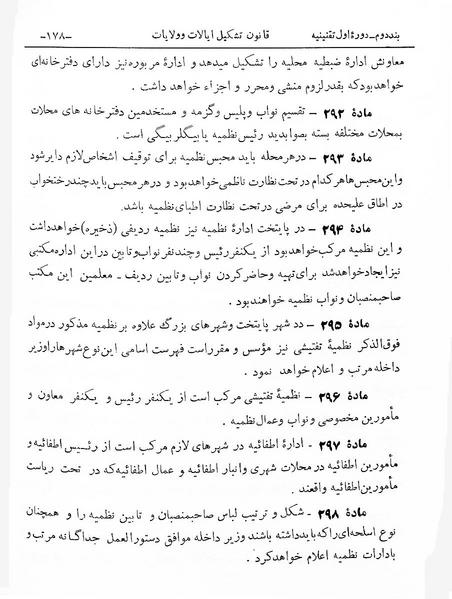 بنددوم-دورهٔ اول تقنینیه قانون تشکیل ایالات وولایات -۱۷۸-
معاونش ادارهٔ ضبطیه محلیه را تشکیل میدهد و ادارهٔ مزبوره نیز دارای دفترخانه‌ای
خواهدبود که بقدر لزوم منشی ومحرر و اجزاء خواهد داشت .
مادهٔ ۲۹۲ - تقسیم نواب وپلیس وگزمه و مستخدمین دفترخانه های محلات
بمحلات مختلفه بسته بصوابدید رئیس نظمیه یا بیگلربیگی است .
مادهٔ ۲۹۳ - درهرمحله باید محبس نظمیه برای توقیف اشخاص لازم دایرشود
واین محبس‌ها هرکدام در تحت نظارت ناظمی خواهدبود و درهرمحبس بایدچندرختخواب
در اطاق علیحده برای مرضی در تحت نظارت اطبای نظمیه باشد.
مادهٔ ۲۹۴ - در پایتخت ادارهٔ نظمیه نیز نظمیه ردیفی (ذخیره) خواهدداشت
و این نظمیه مرکب خواهدبود از یکنفررئیس وچندنفرنواب وتابین دراین اداره مکتبی
نیز ایجادخواهدشد برای تهیه وحاضرکردن نواب وتابین ردیف - معلمین این مکتب
صاحبمنصبان و نواب نظمیه خواهندبود .
مادهٔ ۲۹۵ - دد شهر پایتخت وشهرهای بزرگ علاوه برنظمیه مذکور درمواد
فوق‌الذکر نظمیهٔ تفتیشی نیز مؤسس و مقرراست فهرست اسامی این نوع شهرهاراوزیر
داخله مرتب و اعلام خواهد نمود .
مادهٔ ۲۹۶ - نظمیهٔ تفتیشی مرکب است از یکنفر رئیس و یکنفر معاون و
مأمورین مخصوصی و نواب وعمال نظمیه .
مادهٔ ۲۹۷ - ادارهٔ اطفائیه در شهرهای لازم مرکب است از رئیس اطفائیه و
مأمورین اطفائیه در محلات شهری وانبار اطفائیه و عمال اطفائیه که در تحت ریاست
مأمورین اطفائیه واقعند .
مادهٔ ۲۹۸ - شکل و ترتیب لباس صاحبمنصبان و تابین نظمیه را و همچنان
نوع اسلحه‌ای راکه بایدداشته باشند وزیر داخله موافق دستورالعمل جداگانه مرتب و
بادارات نظمیه اعلام خواهدکرد .